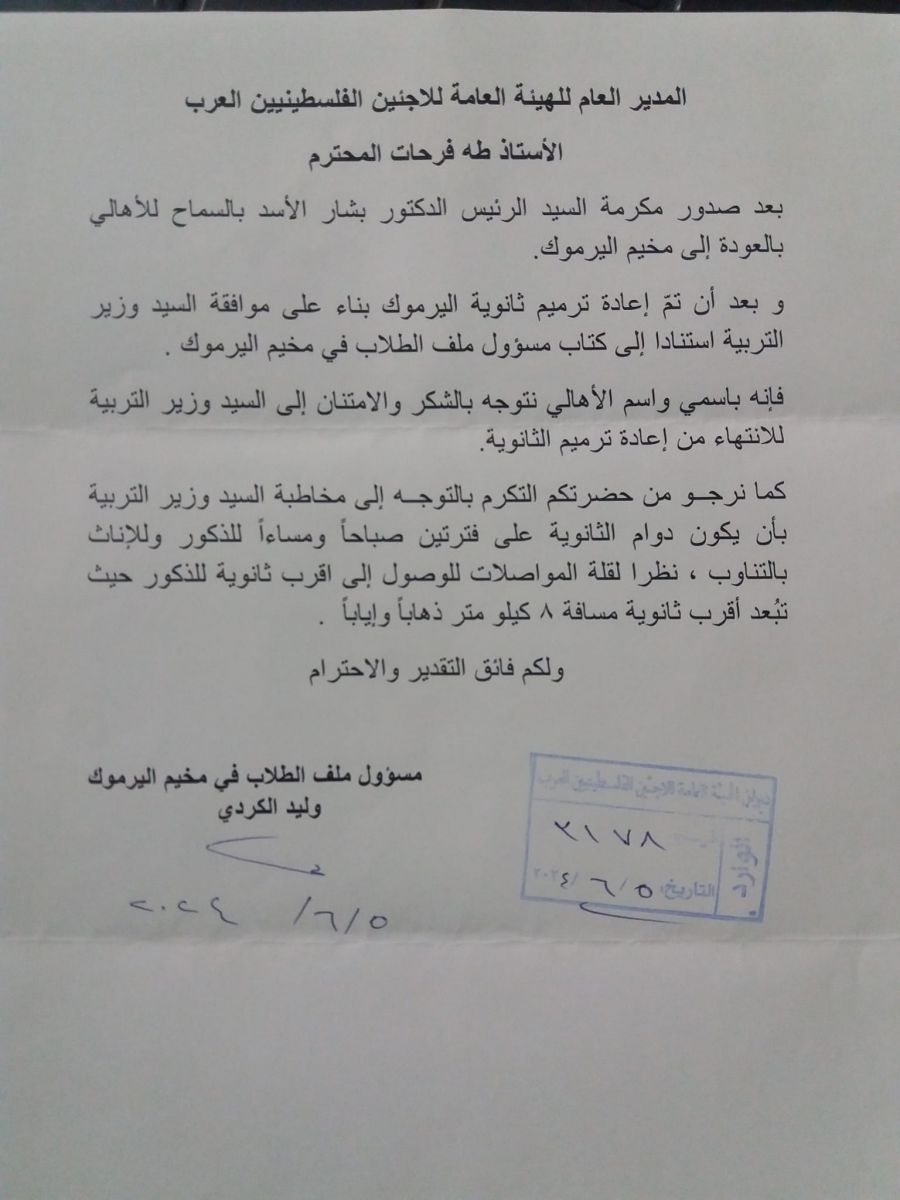 المدير العام للهيئة العامة للاجئين الفلسطينيين العرب
الأستاذ طه فرحات المحترم
بعد صدور مكرمة السيد الرئيس الدكتور بشار الأسد بالسماح للأهالي
بالعودة إلى مخيم اليرموك.
و بعد أن تمّ إعادة ترميم ثانوية اليرموك بناء على موافقة السيد وزير
التربية استنادا إلى كتاب مسؤول ملف الطلاب في مخيم اليرموك .
فإنه باسمي واسم الأهالي نتوجه بالشكر والامتنان إلى السيد وزير التربية
للانتهاء من إعادة ترميم الثانوية.
كما نرجــو من حضرتكم التكرم بالتوجــه إلى مخاطبة السيد وزير التربية
بأن يكون دوام الثانوية على فترتين صباحاً ومساءاً للذكور وللإناث
بالتناوب ، نظرا لقلة المواصلات للوصول إلى اقرب ثانوية للذكور حيث
تبُعد أقرب ثانوية مسافة ٨ كيلو متر ذهاباً وإياباً .
ولكم فائق التقدير والاحترام
مسؤول ملف الطلاب في مخيم اليرموك
وليد الكردي
٢٠٢٤ /٦/٥
ديوان الهيئة العامة للاجئين الفلسطينيين العرب
الوارد
٣١٧٨
التاريخ: ٢٠٢٤/٦/٥